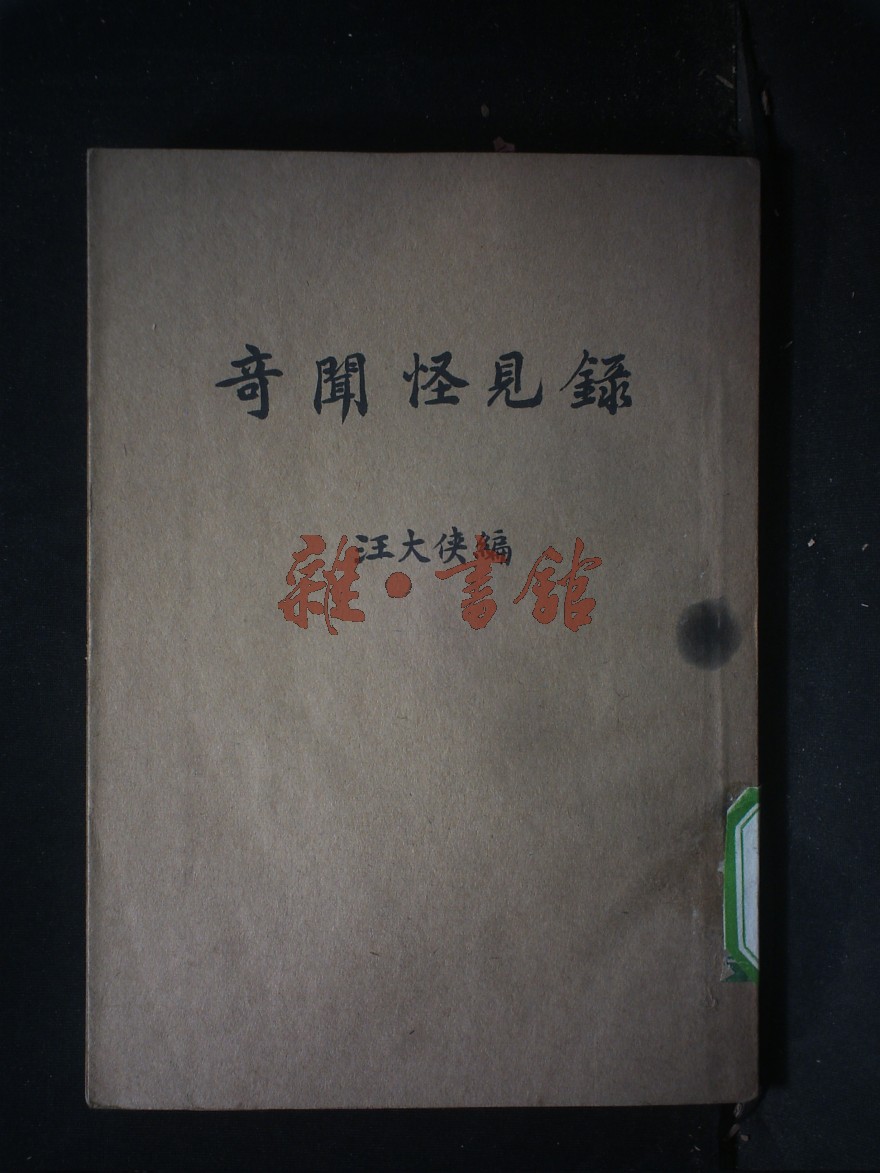 奇聞怪見録
汪大侠編
雜·書館